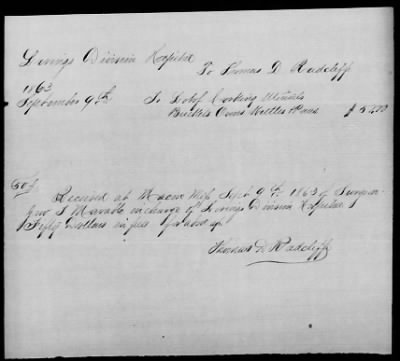 Lorings Division Hospital
To Thomas D. Radcliff
1863
September 9th To Lot of Cooking Utensils
Buckets Ovens Kettles Pans $ 50.00
Copy
Received at Macon Miss Sept 9th 1863 of Surgeon
Jno T Marable in charge of Lorings Division Hospital
Fifty Dollars in full of above acct
Thomas D. Radcliff